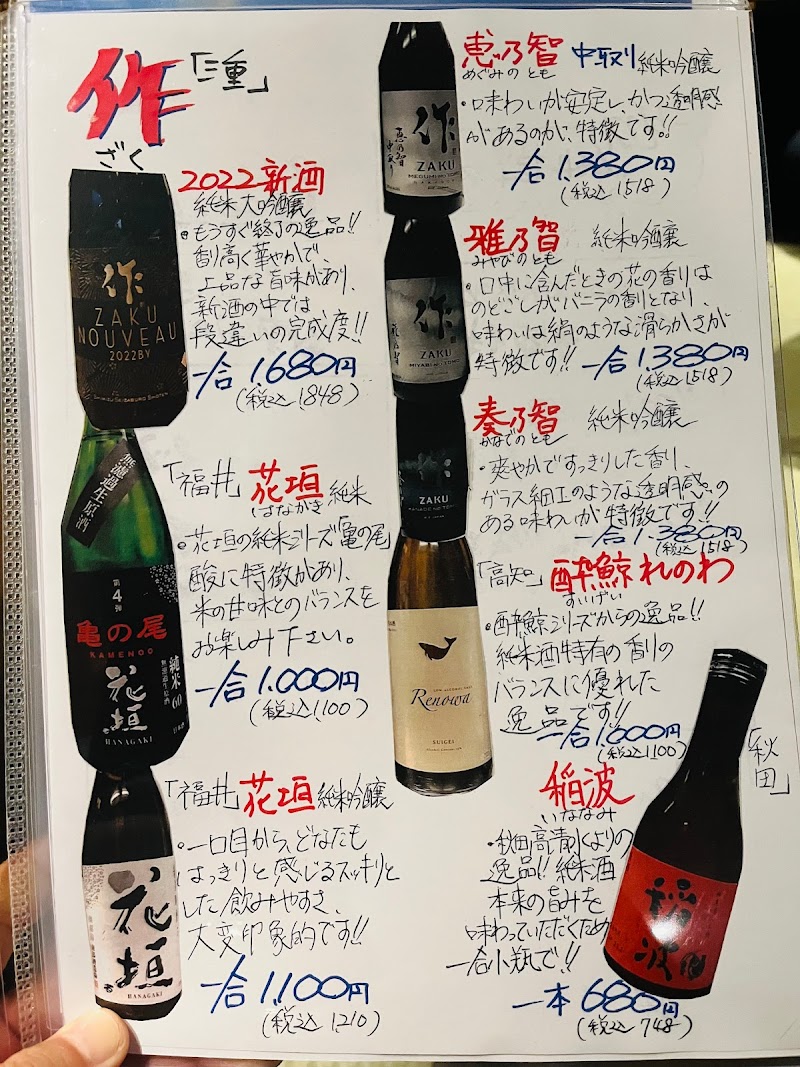 作「三重」
ざく
2022新酒
純米大吟醸
・もうすぐ終了の逸品!!
香り高く華やかで、
上品な旨味があり、
新酒の中では
段違いの完成度!!
一合1,680円
(税込1,848)
作
ZAKU
NOUVEAU
2022BY
「福井」花垣 純米
はながき
・花垣の純米シリーズ「亀の尾」
酸に特徴があり、
米の甘味とのバランスを
お楽しみ下さい。
一合1,000円
(税込1,100)
無濾過生原酒
第4弾
亀の尾
KAMENOO
花垣
純米60
無濾過生原酒
HANAGAKI
「福井」花垣 純米吟醸
・一口目から、どなたも
はっきりと感じるスッキリと
した飲みやすさ、
大変印象的です!!
一合1,100円
(税込1,210)
花垣
HANAGAKI
恵乃智 中取り 純米吟醸
めぐみのとも
・味わいが安定し、かつ透明感
があるのが、特徴です!!
一合1,380円
(税込1,518)
作
恵乃智
中取り
ZAKU
MEGUMI NO TOMO
雅乃智 純米吟醸
みやびのとも
・口中に含んだときの花の香りは
のどごしがバニラの香りとなり、
味わいは絹のような滑らかさが
特徴です!! 一合1,380円
(税込1,518)
作
雅乃智
ZAKU
MIYABI NO TOMO
奏乃智 純米吟醸
かなでのとも
・爽やかですっきりした香り、
ガラス細工のような透明感の
ある味わいが特徴です!!
一合1,380円
(税込1,518)
作
ZAKU
KANADE NO TOMO
「高知」酔鯨れのわ
すいげい
・酔鯨シリーズからの逸品!!
純米酒特有の香りの
バランスに優れた
逸品です!!
一合1,000円
(税込1,100)
Renowa
SUIGEI
「秋田」
稲波
いななみ
・秋田高清水よりの
逸品!! 純米酒
本来の旨みを
味わっていただくため
一合小瓶で!!
一本680円
(税込748)
稲波